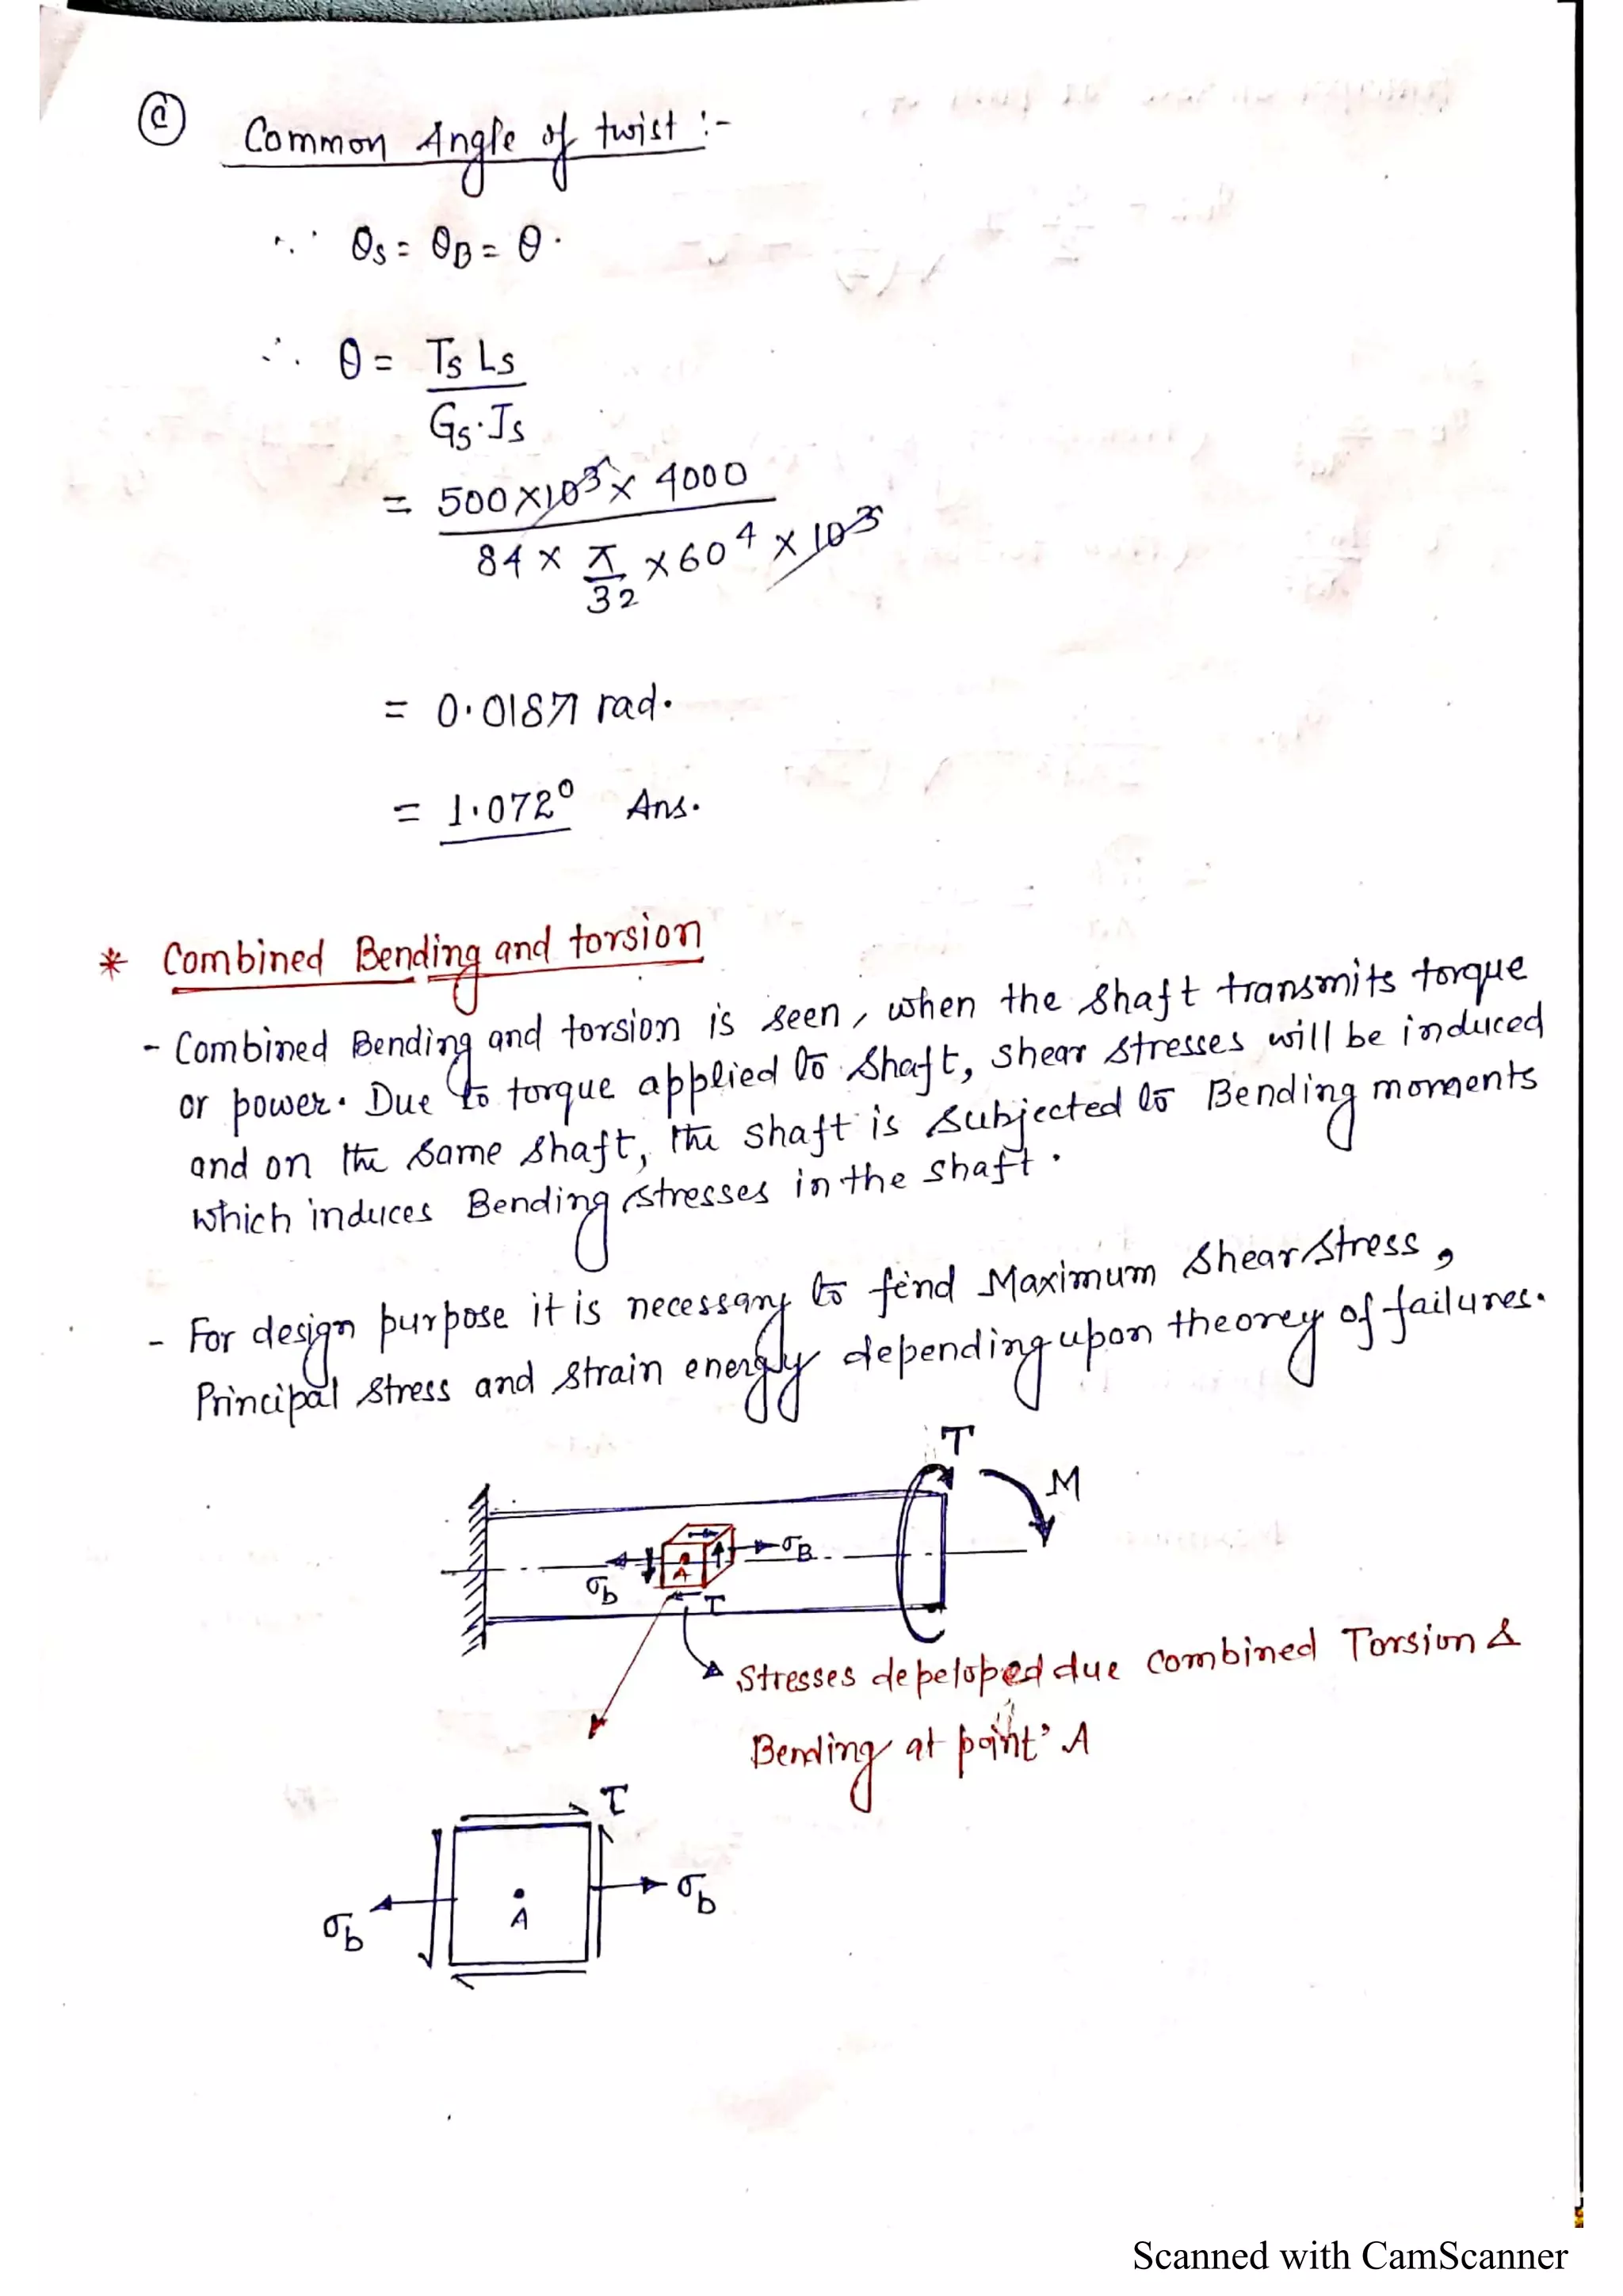 (C) Common Angle of twist :-
∵ θS = θB = θ.
∴ θ = TS LS
GS·JS
= 500×10³ × 4000
84 × π/32 × 60⁴ × 10³
= 0.01871 rad.
= 1.072° Ans.
* Combined Bending and torsion
- Combined Bending and torsion is seen, when the shaft transmits torque
or power. Due to torque applied to shaft, shear stresses will be induced
and on the same shaft, the shaft is subjected to Bending moments
which induces Bending stresses in the shaft.
- For design purpose it is necessary to find Maximum shear stress,
Principal stress and strain energy depending upon theorey of failures.
T
M
σB
A
σb
τ
Stresses depeloped due combined Torsion &
Bending at point 'A
τ
σb
σb
A
Scanned with CamScanner